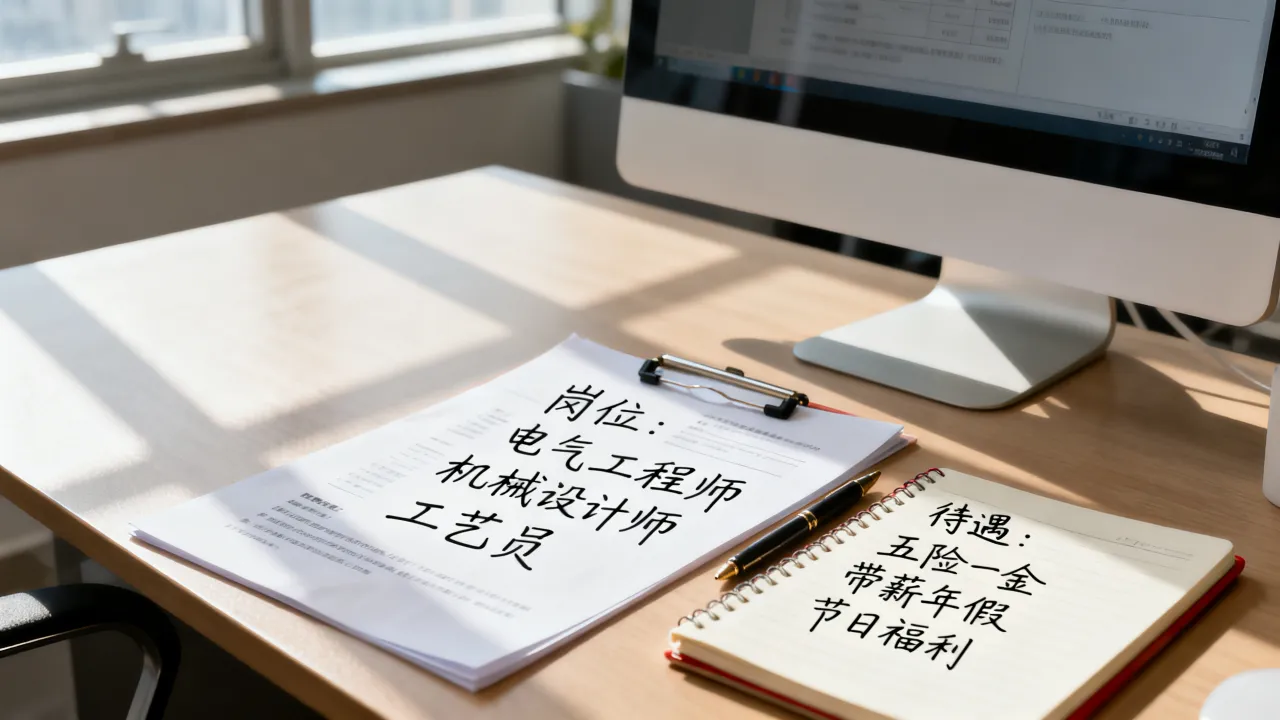 岗位：
电气工程师
机械设计师
工艺员
待遇：
五险一金
带薪年假
节日福利